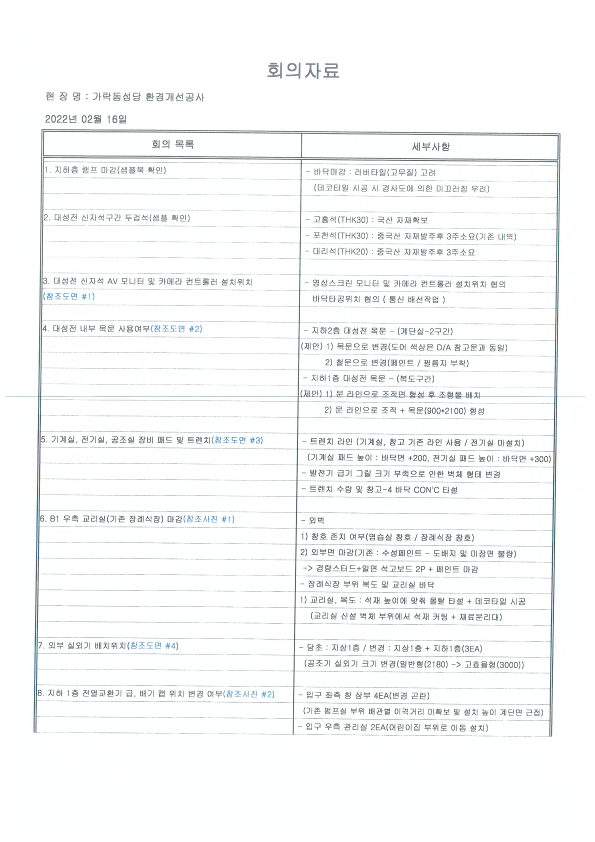 회의자료
현 장 명 : 가락동성당 환경개선공사
2022년 02월 16일
회의 목록
세부사항
1. 지하층 램프 마감(샘플북 확인)
- 바닥마감 : 러버타일(고무질) 고려
(데코타일 시공 시 경사도에 의한 미끄러짐 우려)
2. 대성전 신자석구간 두겁석(샘플 확인)
- 고흥석(THK30) : 국산 자재확보
- 포천석(THK30) : 중국산 자재발주후 3주소요(기존 내역)
- 대리석(THK20) : 중국산 자재발주후 3주소요
3. 대성전 신자석 AV 모니터 및 카메라 컨트롤러 설치위치
(참조도면 #1)
- 영상스크린 모니터 및 카메라 컨트롤러 설치위치 협의
바닥타공위치 협의 ( 통신 배선작업 )
4. 대성전 내부 목문 사용여부(참조도면 #2)
- 지하2층 대성전 목문 - (계단실-2구간)
(제안) 1) 목문으로 변경(도어 색상은 D/A 창고문과 동일)
2) 철문으로 변경(페인트 / 필름지 부착)
- 지하1층 대성전 목문 - (복도구간)
(제안) 1) 문 라인으로 조적면 형성 후 조형물 배치
2) 문 라인으로 조적 + 목문(900*2100) 형성
5. 기계실, 전기실, 공조실 장비 패드 및 트렌치(참조도면 #3)
- 트렌치 라인 (기계실, 창고 기존 라인 사용 / 전기실 미설치)
(기계실 패드 높이 : 바닥면 +200, 전기실 패드 높이 : 바닥면 +300)
- 발전기 급기 그릴 크기 부족으로 인한 벽체 형태 변경
- 트렌치 수량 및 창고-4 바닥 CON'C 타설
6. B1 우측 교리실(기존 장례식장) 마감(참조사진 #1)
- 외벽
1) 창호 존치 여부(염습실 창호 / 장례식장 창호)
2) 외부면 마감(기존 : 수성페인트 - 도배지 및 미장면 불량)
-> 경량스터드+일면 석고보드 2P + 페인트 마감
- 장례식장 부위 복도 및 교리실 바닥
1) 교리실, 복도 : 석재 높이에 맞춰 몰탈 타설 + 데코타일 시공
(교리실 신설 벽체 부위에서 석재 커팅 + 재료분리대)
7. 외부 실외기 배치위치(참조도면 #4)
- 당초 : 지상1층 / 변경 : 지상1층 + 지하1층(3EA)
(공조기 실외기 크기 변경(일반형(2180) -> 고효율형(3000))
8. 지하 1층 전열교환기 급, 배기 캡 위치 변경 여부(참조사진 #2)
- 입구 좌측 창 상부 4EA(변경 곤란)
(기존 펌프실 부위 배관별 이격거리 미확보 및 설치 높이 계단면 근접)
- 입구 우측 관리실 2EA(어린이집 부위로 이동 설치)